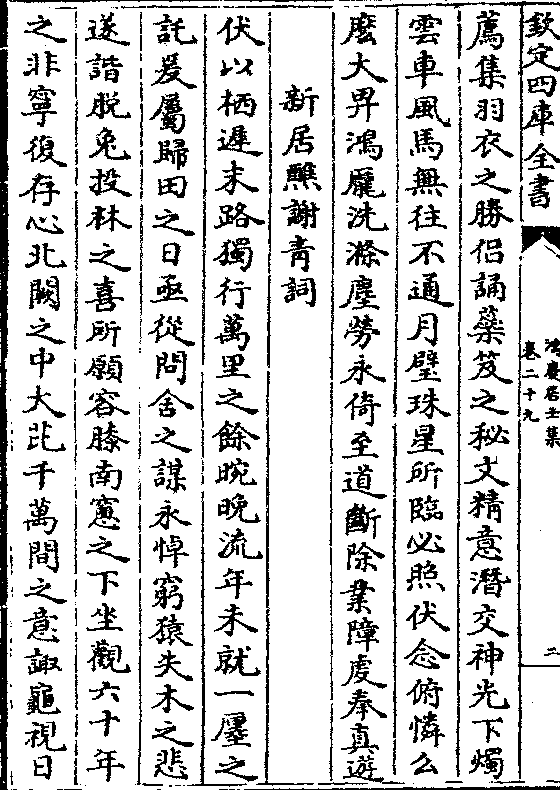 欽定四庫全書
鴻慶居士集
卷二十九
二
薦集羽衣之勝侣誦蘂笈之秘文精意潛交神光下燭
雲車風馬無往不通月璧珠星所臨必照伏念俯憐么
麽大畀鴻龎洗滌塵勞永倚至道斷除業障䖍奉真遊
新居醮謝青詞
伏以栖遲末路獨行萬里之餘晼晚流年未就一廛之
託爰屬歸田之日亟從問舍之謀永悼窮猿失木之悲
遂諧脱兔投林之喜所願容膝南窻之下坐觀六十年
之非寧復存心北闕之中大芘千萬間之意諏龜視日